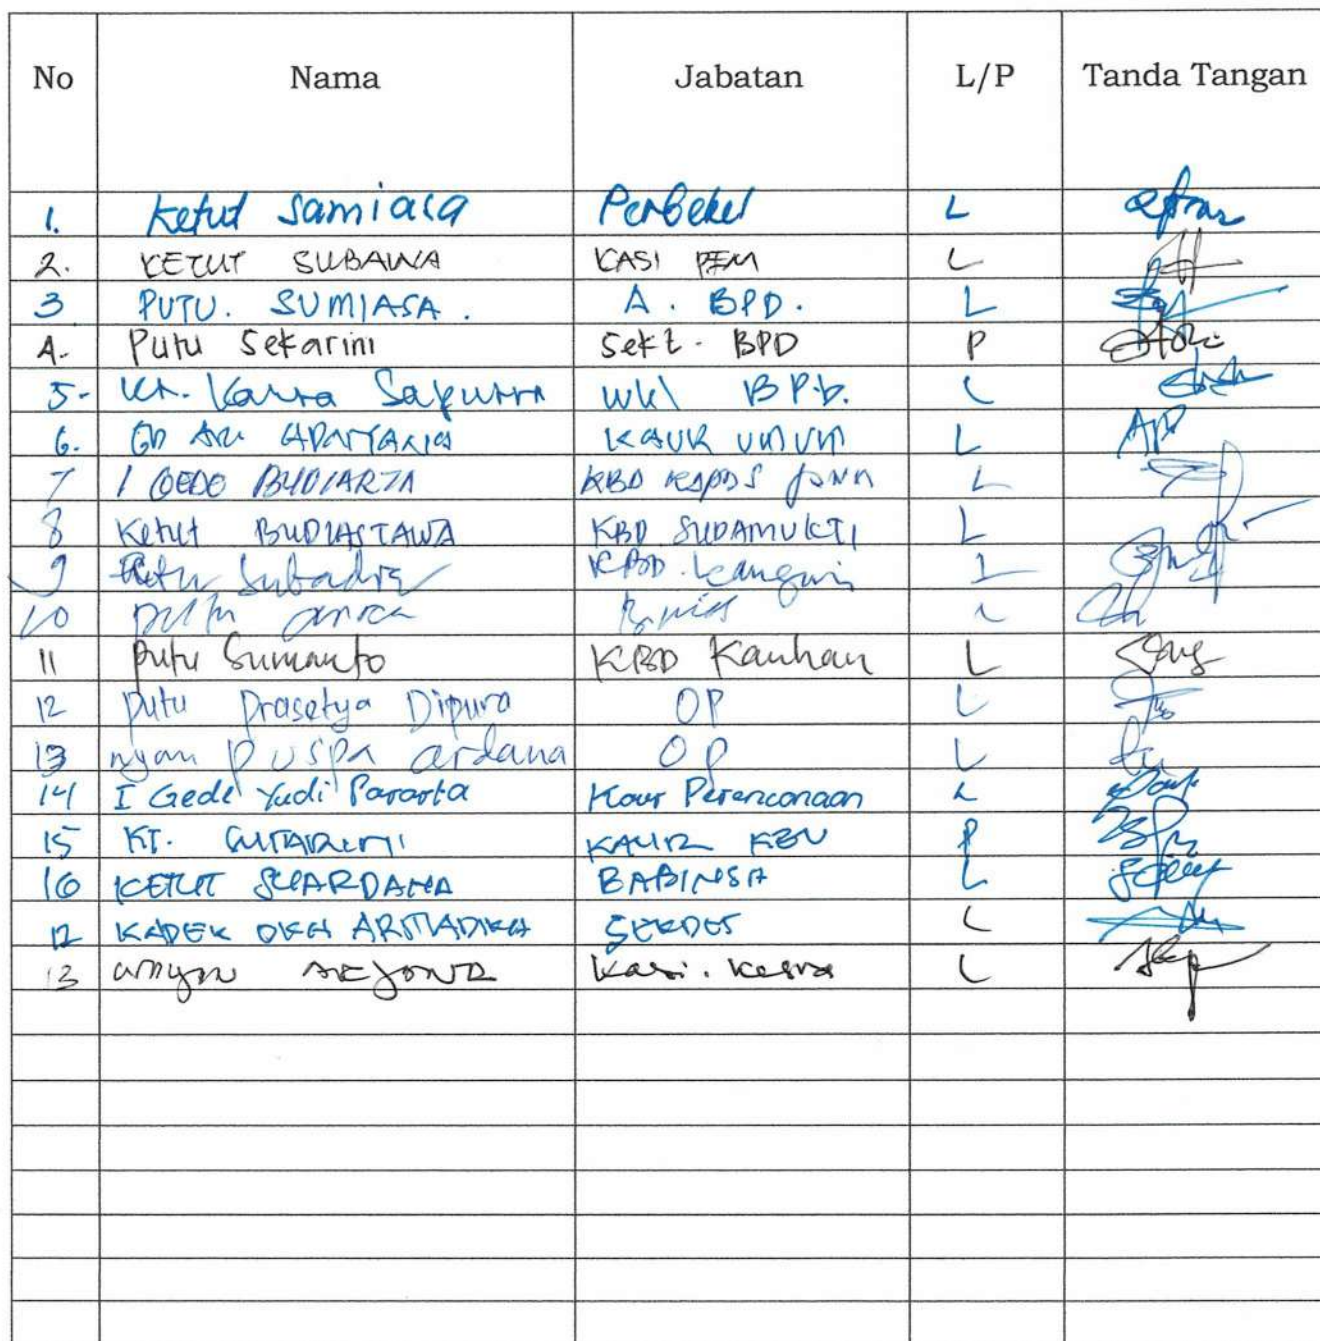 No Nama Jabatan L/P Tanda Tangan
1. Ketut Samiasa Perbekel L
2. KETUT SUBAWA KASI PEM L
3 PUTU. SUMIASA. A. BPD. L
4. Putu Sekarini Sekt. BPD P
5- Kt. wkl BPD. L
6. Gd KAUR UMUM L
7 I GEDE BUDIARTA KBD L
8 Ketut BUDIASTAWA KBD SUDAMUKTI L
9 Subadra KBD. Kangin L
10 putu L
11 putu Sumanto KBD Kauhan L
12 Putu Prasetya Dipura OP L
13 nyom puspa ardana OP L
14 I Gede Yudi Pararta Kaur Perencanaan L
15 KT. KAUR KEU P
16 KETUT SUARDANA BABINSA L
12 KADEK OKA SEKDES L
13 Kasi. Kesra L